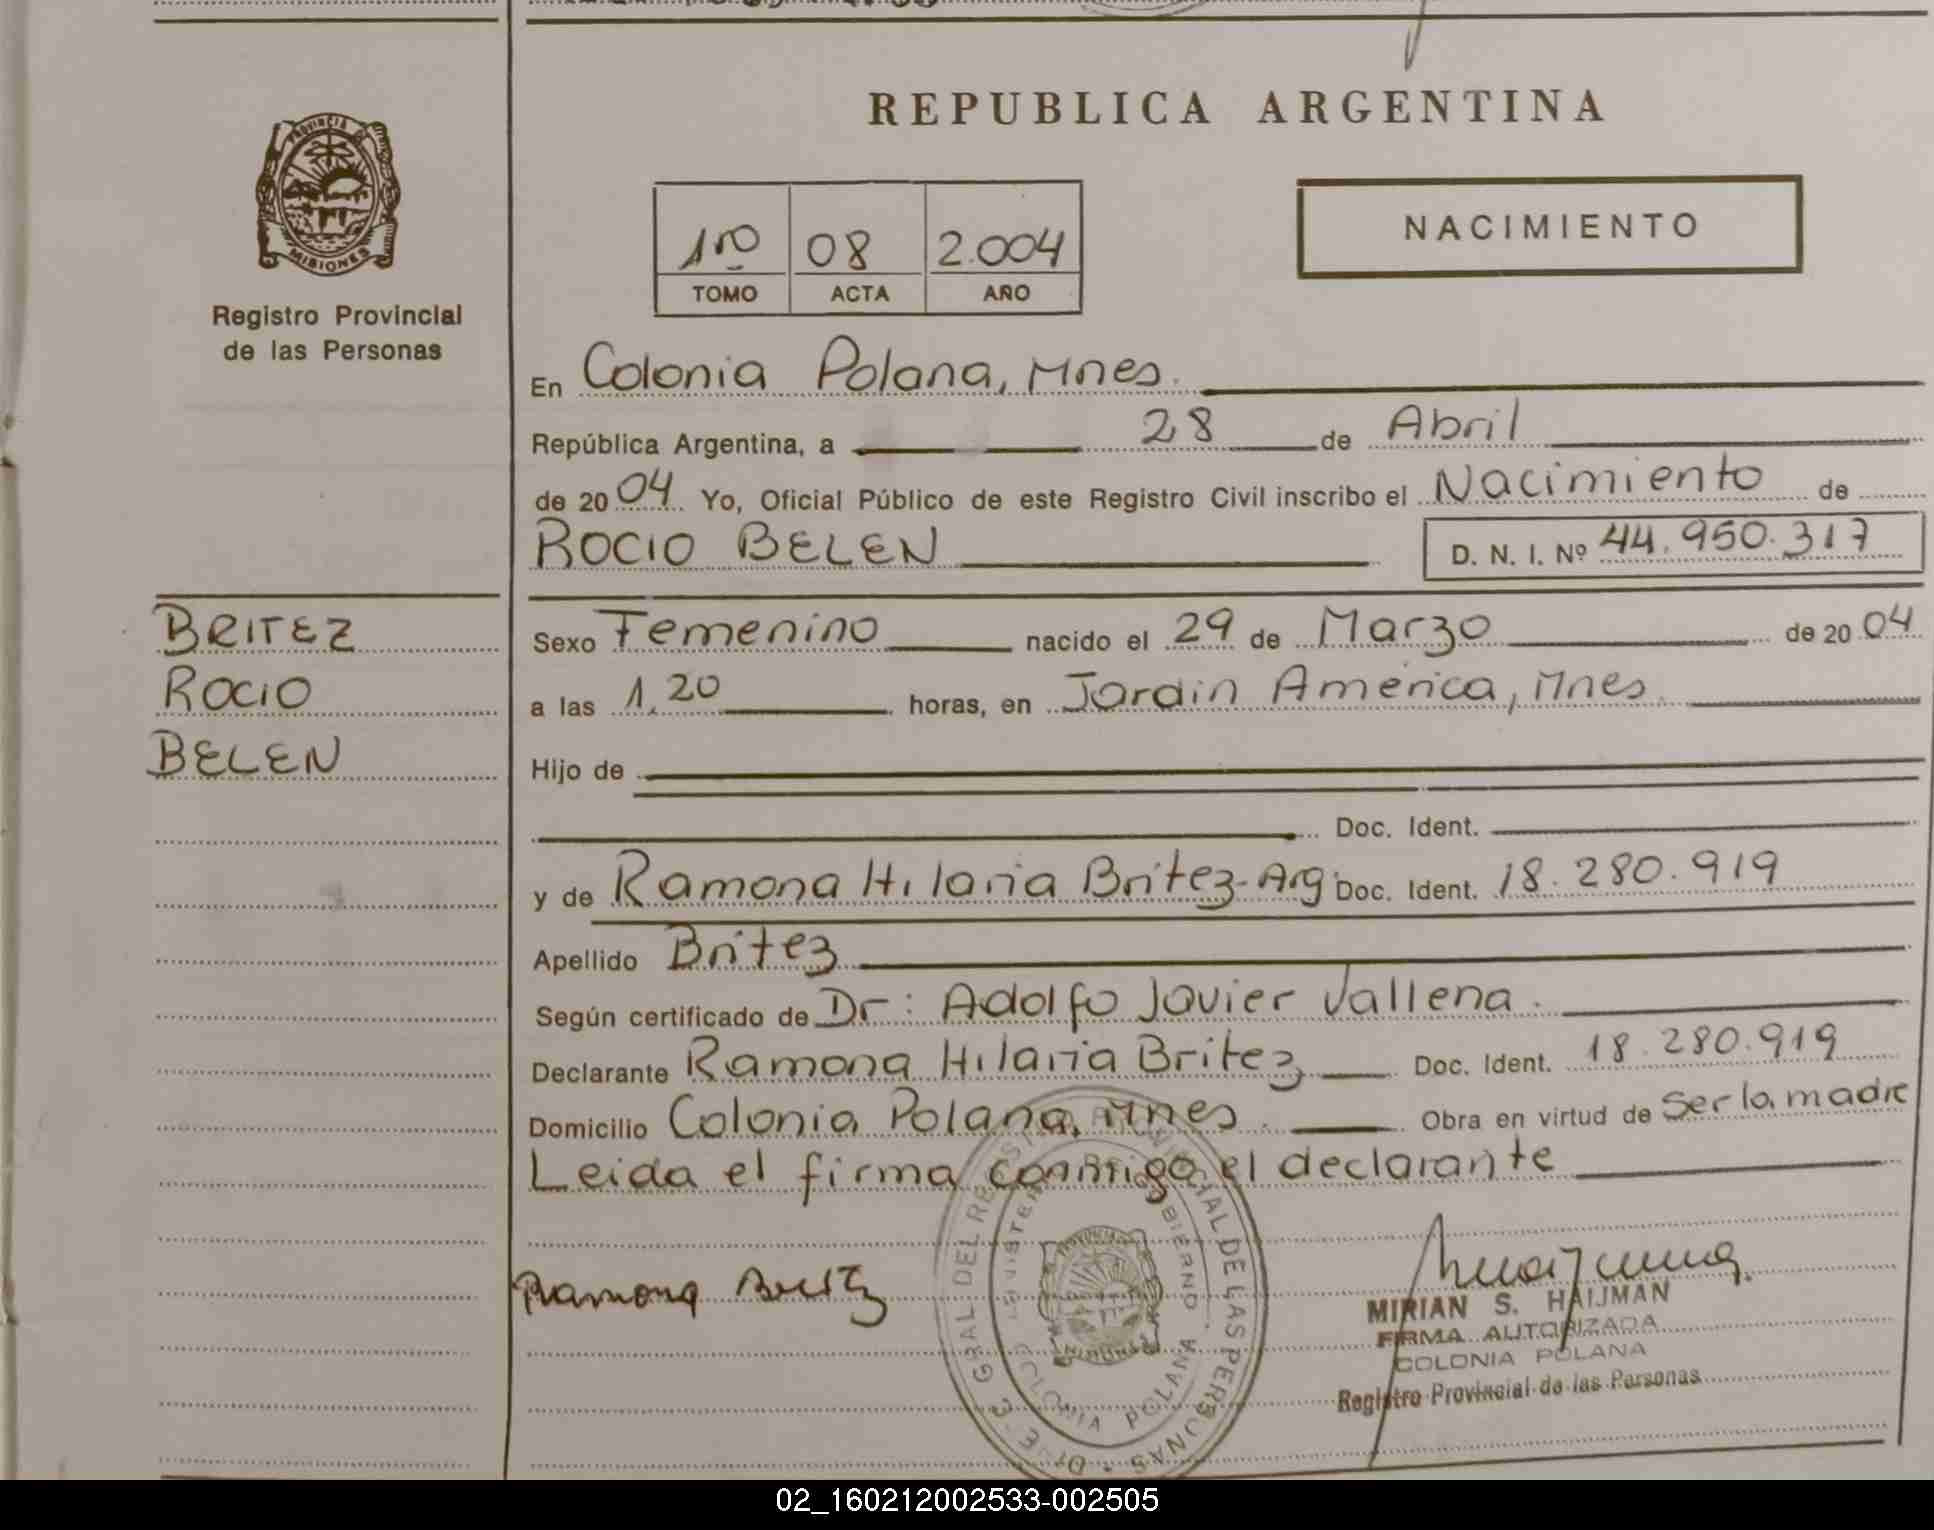 REPUBLICA ARGENTINA
PROVINCIA DE
MISIONES
Registro Provincial
de las Personas
1ro 08 2.004
TOMO ACTA AÑO
NACIMIENTO
En Colonia Polana, Mnes.
República Argentina, a 28 de Abril
de 2004 Yo, Oficial Público de este Registro Civil inscribo el Nacimiento de
ROCIO BELEN D. N. I. Nº 44.950.317
BRITEZ
ROCIO
BELEN
Sexo Femenino nacido el 29 de Marzo de 2004
a las 1,20 horas, en Jardin America, Mnes.
Hijo de
Doc. Ident.
y de Ramona Hilaria Britez-Arg. Doc. Ident. 18.280.919
Apellido Britez
Según certificado de Dr: Adolfo Javier Vallena.
Declarante Ramona Hilaria Britez Doc. Ident. 18.280.919
Domicilio Colonia Polana, Mnes. Obra en virtud de Ser la madre
Leida el firma conmigo el declarante
Ramona Britez
MIRIAN S. HAIJMAN
FIRMA AUTORIZADA
COLONIA POLANA
Registro Provincial de las Personas
COLONIA POLANA
02_160212002533-002505